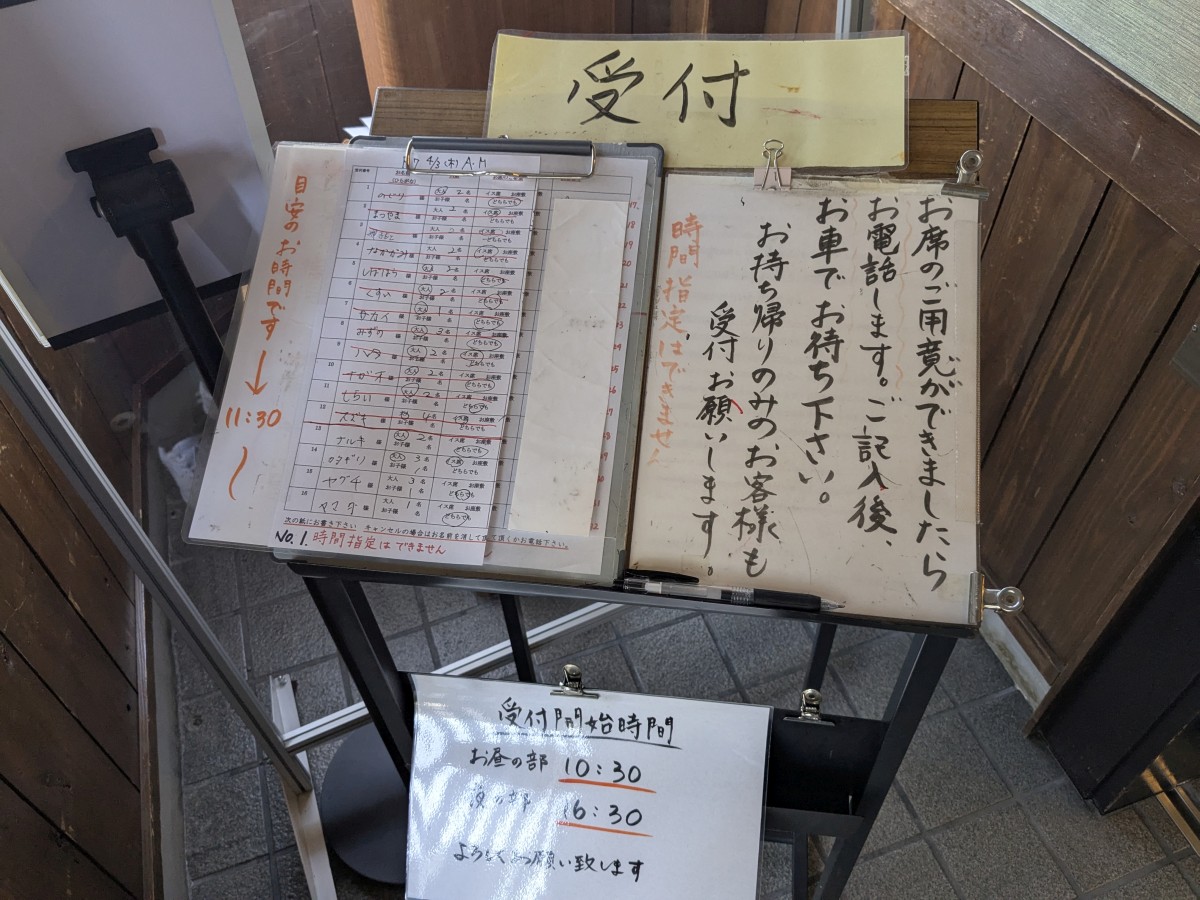 受付
お席のご用意ができましたら
お電話します。ご記入後、
お車でお待ち下さい。
お持ち帰りのみのお客様も
受付お願いします。
時間指定はできません
目安のお時間です→11:30〜
4/3(木)A.M
受付番号
お名前
(ひらがな)
1 様 大人 2名 お子様 名 イス席 お座敷 どちらでも
2 まつやま 様 大人 2名 お子様 名 イス席 お座敷 どちらでも
3 様 大人 名 お子様 名 イス席 お座敷 どちらでも
4 様 大人 名 お子様 名 イス席 お座敷 どちらでも
5 様 大人 名 お子様 名 イス席 お座敷 どちらでも
6 様 大人 2名 お子様 名 イス席 お座敷 どちらでも
7 サカイ 様 大人 1名 お子様 名 イス席 お座敷 どちらでも
8 みずの 様 大人 3名 お子様 名 イス席 お座敷 どちらでも
9 様 大人 2名 お子様 名 イス席 お座敷 どちらでも
10 様 大人 2名 お子様 名 イス席 お座敷 どちらでも
11 しらい 様 大人 2名 お子様 名 イス席 お座敷 どちらでも
12 スズキ 様 4名 お子様 名 イス席 お座敷 どちらでも
13 ナルキ 様 大人 2名 お子様 名 イス席 お座敷 どちらでも
14 様 大人 3名 お子様 1名 イス席 お座敷 どちらでも
15 ヤグチ 様 大人 3名 お子様 1名 イス席 お座敷 どちらでも
16 ヤマダ 様 大人 1名 お子様 名 イス席 お座敷 どちらでも
17.
18
19
20
21
22
次の紙にお書き下さい キャンセルの場合はお名前を消して頂くかお電話下さい。
No.1. 時間指定はできません
受付開始時間
お昼の部 10:30
夜の部 16:30
よろしくお願い致します